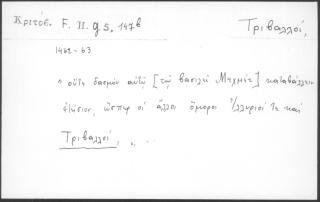 Κριτόβ. F. II. g 5. 147b
Τριβαλλοί,
1462-63
"οὔτε δασμὸν αὐτῷ [τῷ βασιλεῖ Μεχμὲτ] καταβάλλειν
ἐτήσιον, ὥσπερ οἱ ἄλλοι ὅμοροι Ἰλλυριοί τε καὶ
Τριβαλλοί, " ...